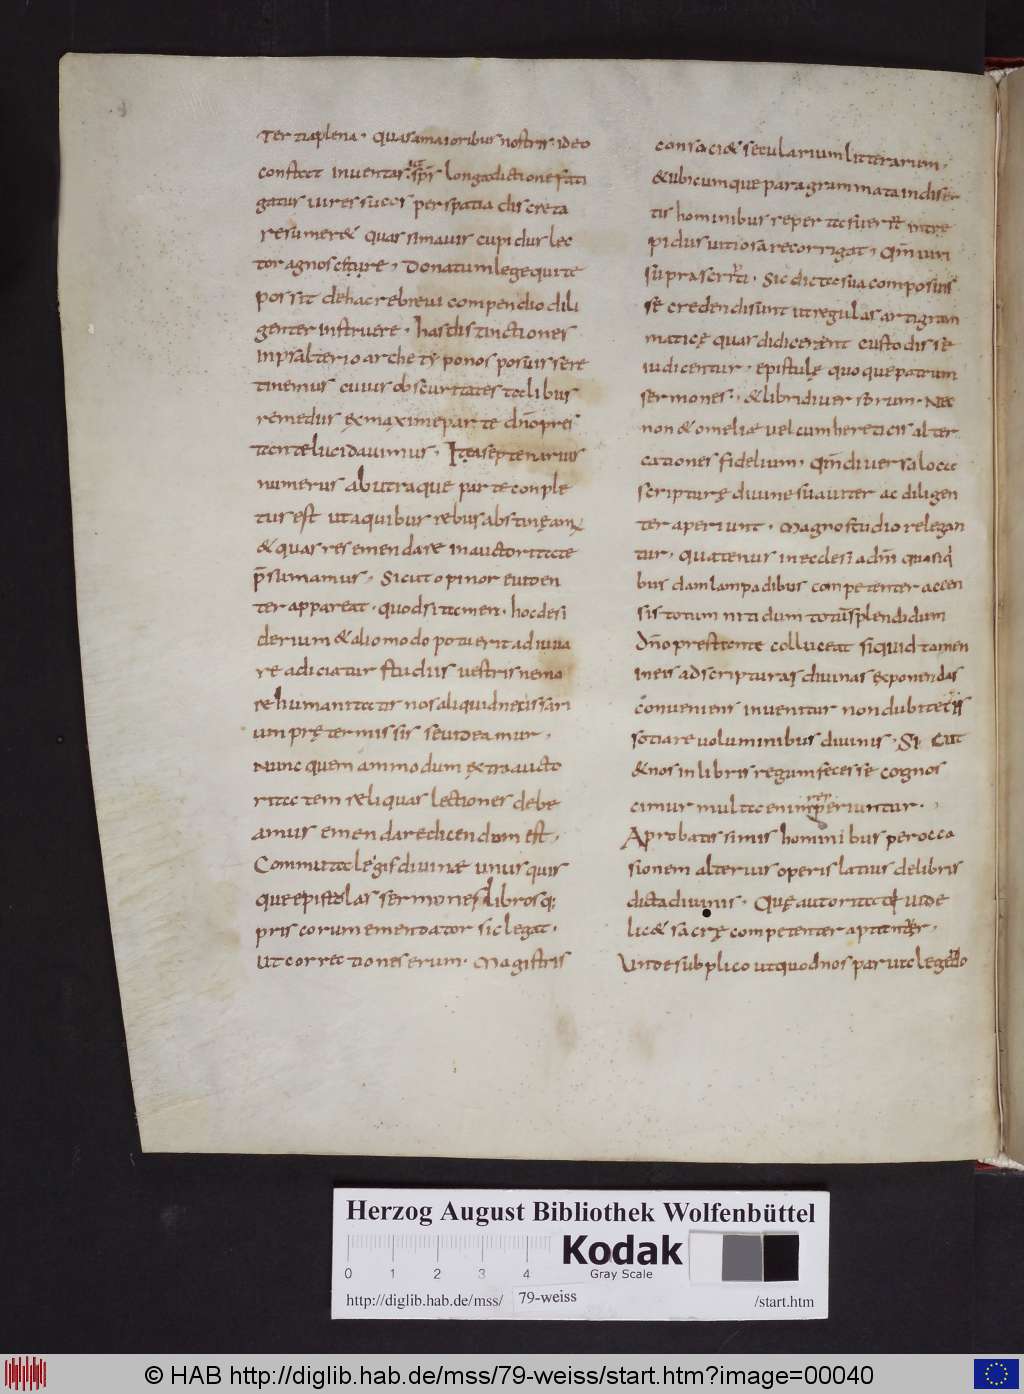 ter ria plena. Quas a maioribus nostris ideo
constat inventas ut sp̄s longa dictione fati
gatus uires suas per spatia discreta
resumeret Quas si mauis cupidus lec
tor agnoscere, Donatum lege qui te
possit de hac re breui compendio dili
genter instruere. has distinctiones
in psalterio archetypo nos posuisse re
tinemus cuius obscuritates talibus
remediis ex maxime parte dn̄o pres
tante lucidauimus. Ita septenarius
numerus ab utraque parte conple
tus est ut a quibus rebus abstineam;
& quas res emendare in auctoritate
p̄sumamus. Sicut opinor euiden
ter appareat. quod si tamen. hoc desi
derium & alio modo potuerit adiuua
re adiciatur studiis uestris nemo
se humanitatis nos aliquid necissari
um pretermissis se uideamur.
Nunc quem ammodum extra aucto
ritatem reliquas lectiones debe
amus emendare dicendum est.
Commutata legis diuine unusquis
que epistolas sermones librosq;
priscorum emendator sic legat.
Ut correctiones erum. Magistris
consociet secularium litterarum.
& ubicumque paragrammata indiser
tis hominibus reperta fuerīt intre
pidus uitiosa recorrigat. Qm̄ uiri
sup̄rascripti. Sic dicta sua composuis
se credendi sunt ut regulas artigram
matice quas didicerent custodisse
iudicentur. epistule quoque patrum
sermones. & libri diuersorum. Nec
non & omeliae uel cum hereticis alter
cationes fidelium. Qm̄ diuersa loca
scripture diuine suauiter ac diligen
ter aperiunt. Magno studio relegan
tur. quatenus in ecclesia dn̄i quasi q
bus dam lampadibus competenter accen
sis totum nitidum totū splendidum
dn̄o prestante colluceat si quid tamen
in eis ad scripturas diuinas exponendas
conueniens inuenitur non dubitetis
sociare uoluminibus diuinis. Si cut
& nos in libris regum fecisse cognos
cimur multa enim reperiuntur.
A probatissimis hominibus per occa
sionem alterius operis latius de libris
dicta diuinis. Que autoritati uide
licet sacre competenter aptantur.
Unde supplico ut quod nos parua legendo
Herzog August Bibliothek Wolfenbüttel
Kodak
Gray Scale
0 1 2 3 4
http://diglib.hab.de/mss/ 79-weiss /start.htm
© HAB http://diglib.hab.de/mss/79-weiss/start.htm?image=00040